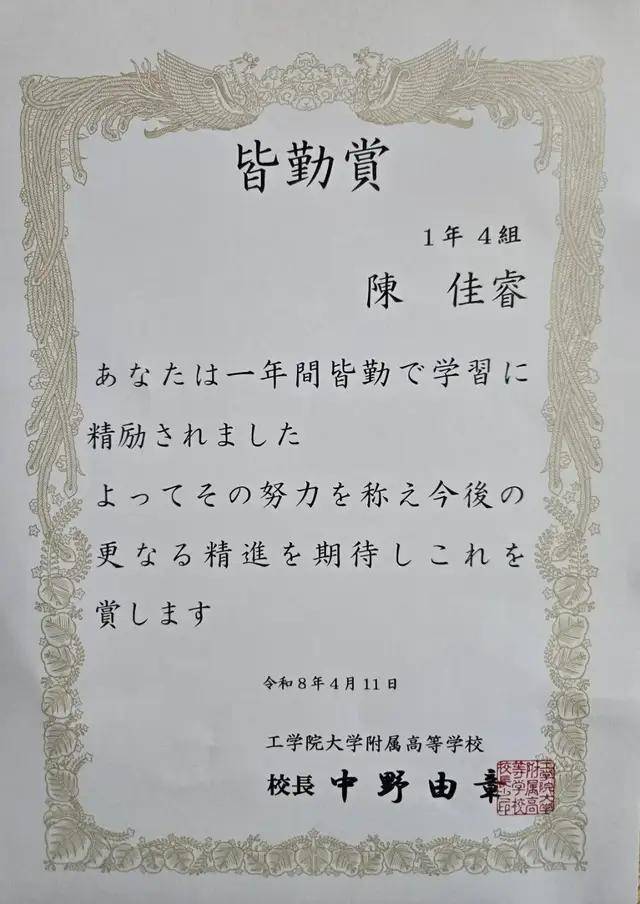 皆勤賞
1年 4組
陳 佳睿
あなたは一年間皆勤で学習に
精励されました
よってその努力を称え今後の
更なる精進を期待しこれを
賞します
令和8年4月11日
工学院大学附属高等学校
校長 中野由章
工学院大学
附属高
等学校
校長之印